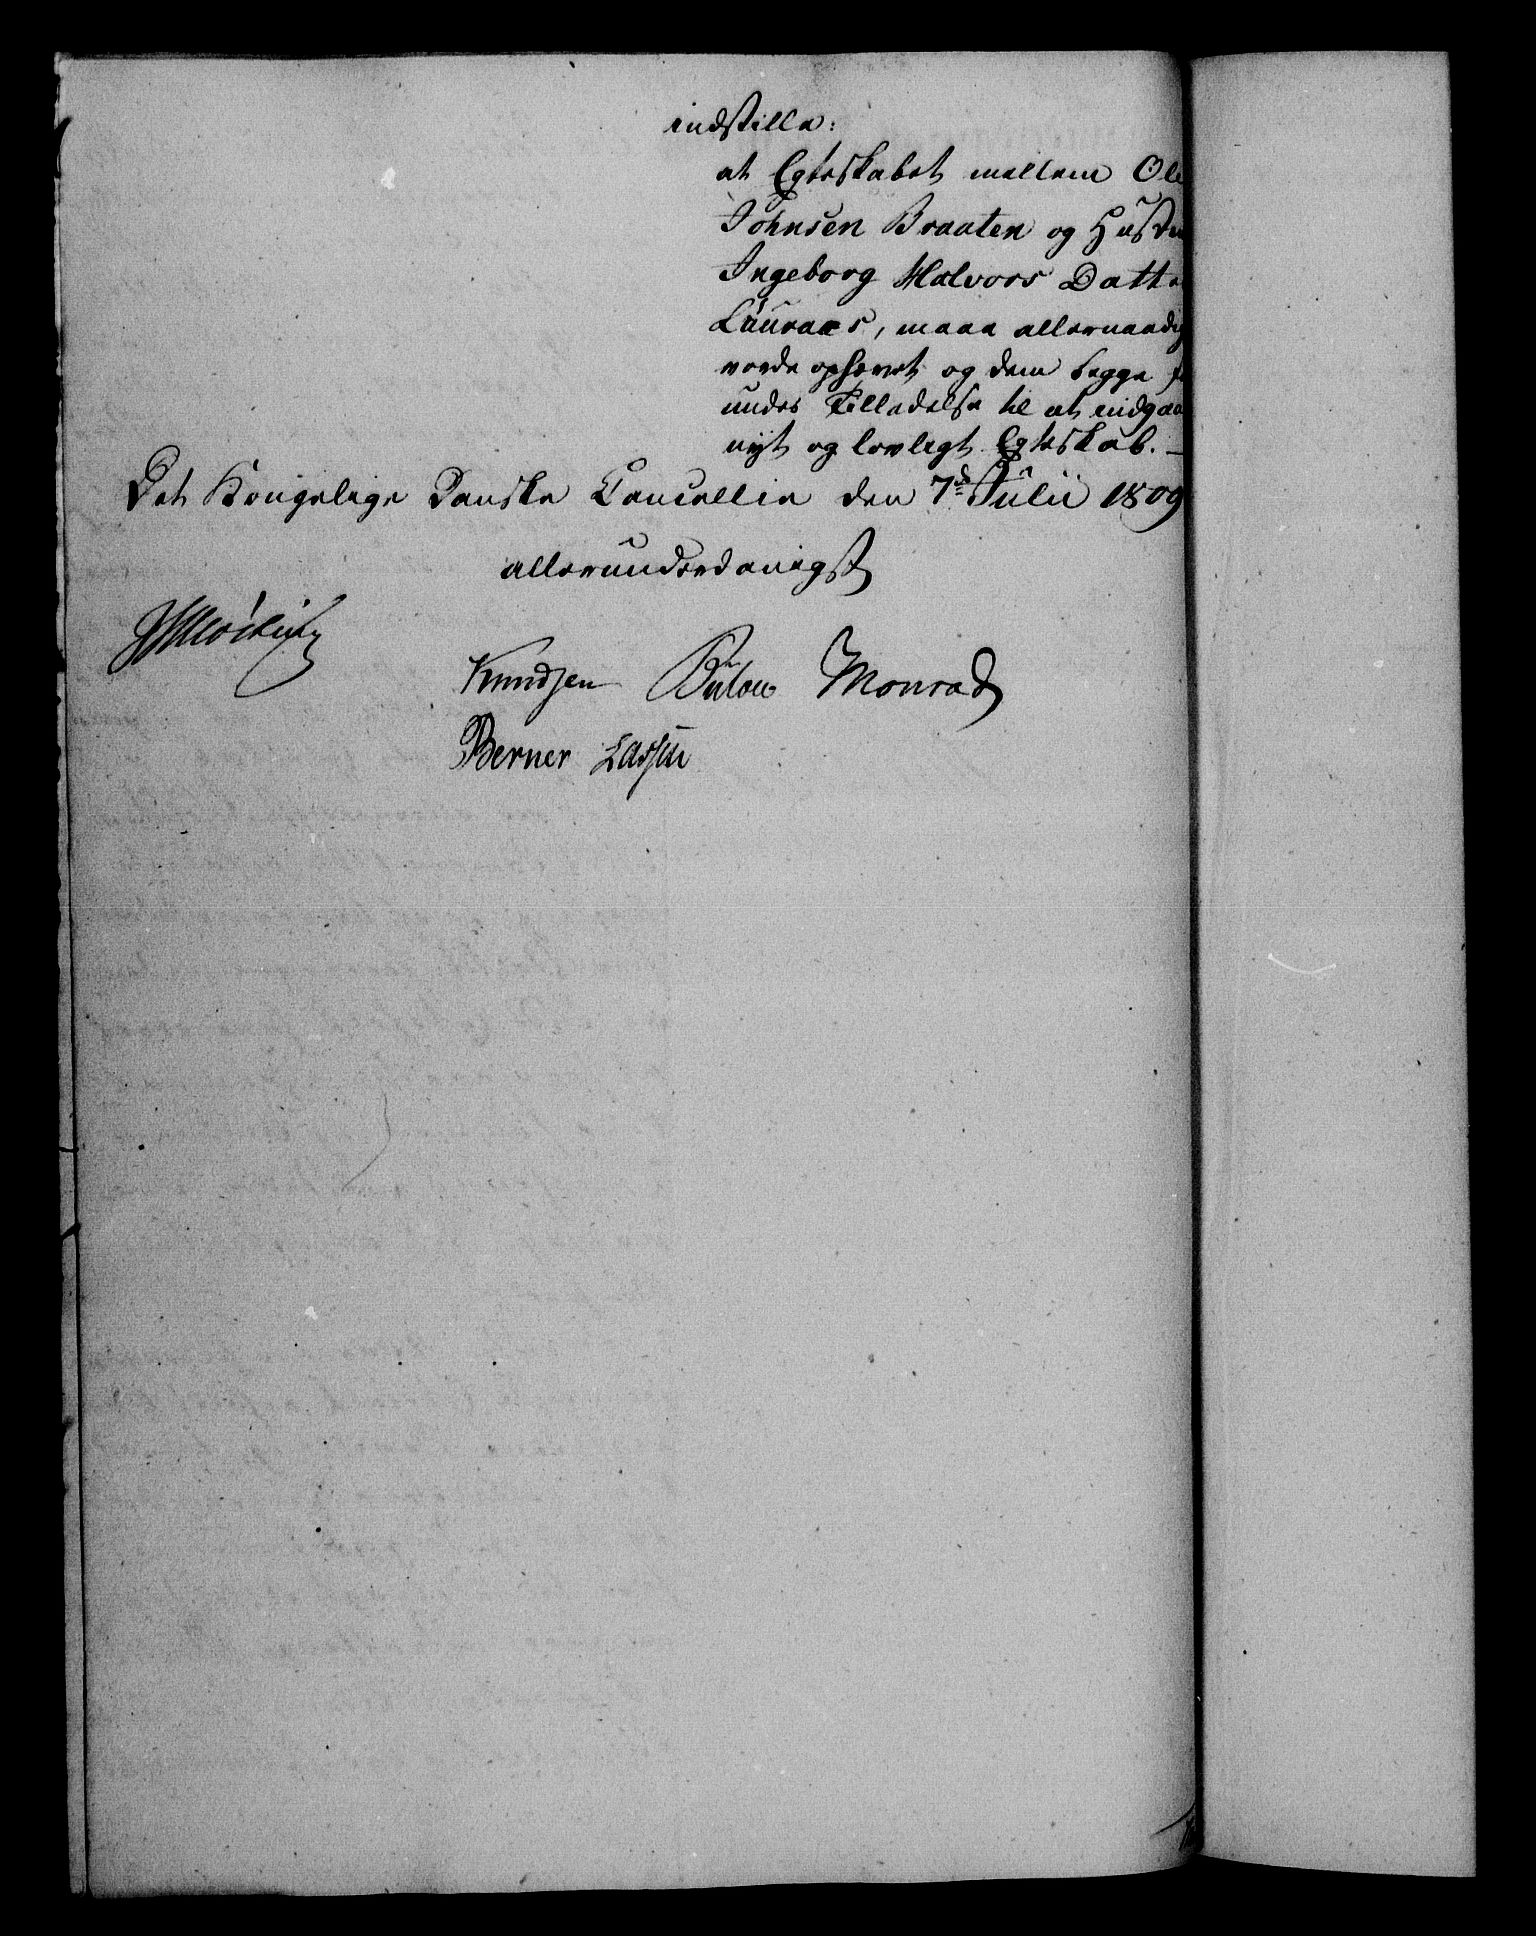 indstille:
at Egteskabet mellem Ole
Johnsen Braaten og Hustru
Ingeborg Halvors Datte
Lauraas, maae allernaadig
vorde ophævet og dem begge
undes Tilladelse til at indgaae
nyt og lovligt Egteskab. –
Det Kongelige Danske Cancellie den 7d Julii 1809
allerunderdanigst
Kaas
Knudsen Bülow Monrad
Berner Lassen